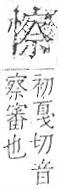 初戛切音
察審也